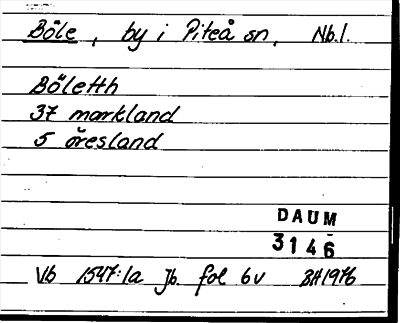 Böle, by i Piteå sn, Nb.l.
Böletth
37 markland
5 öresland
DAUM
3146
Vb 1547:1a Jb. fol 6v BH1976